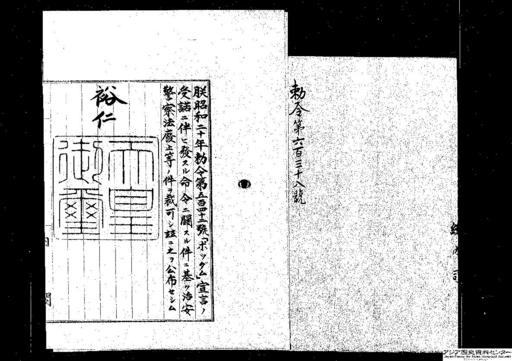 勅令第六百三十八號
朕昭和二十年勅令第五百四十二號「ポツダム」宣言ノ
受諾ニ伴ヒ發スル命令ニ關スル件ニ基ク治安
警察法廢止等ノ件ヲ裁可シ茲ニ之ヲ公布セシム
裕仁
天皇
御璽
アジア歴史資料センター